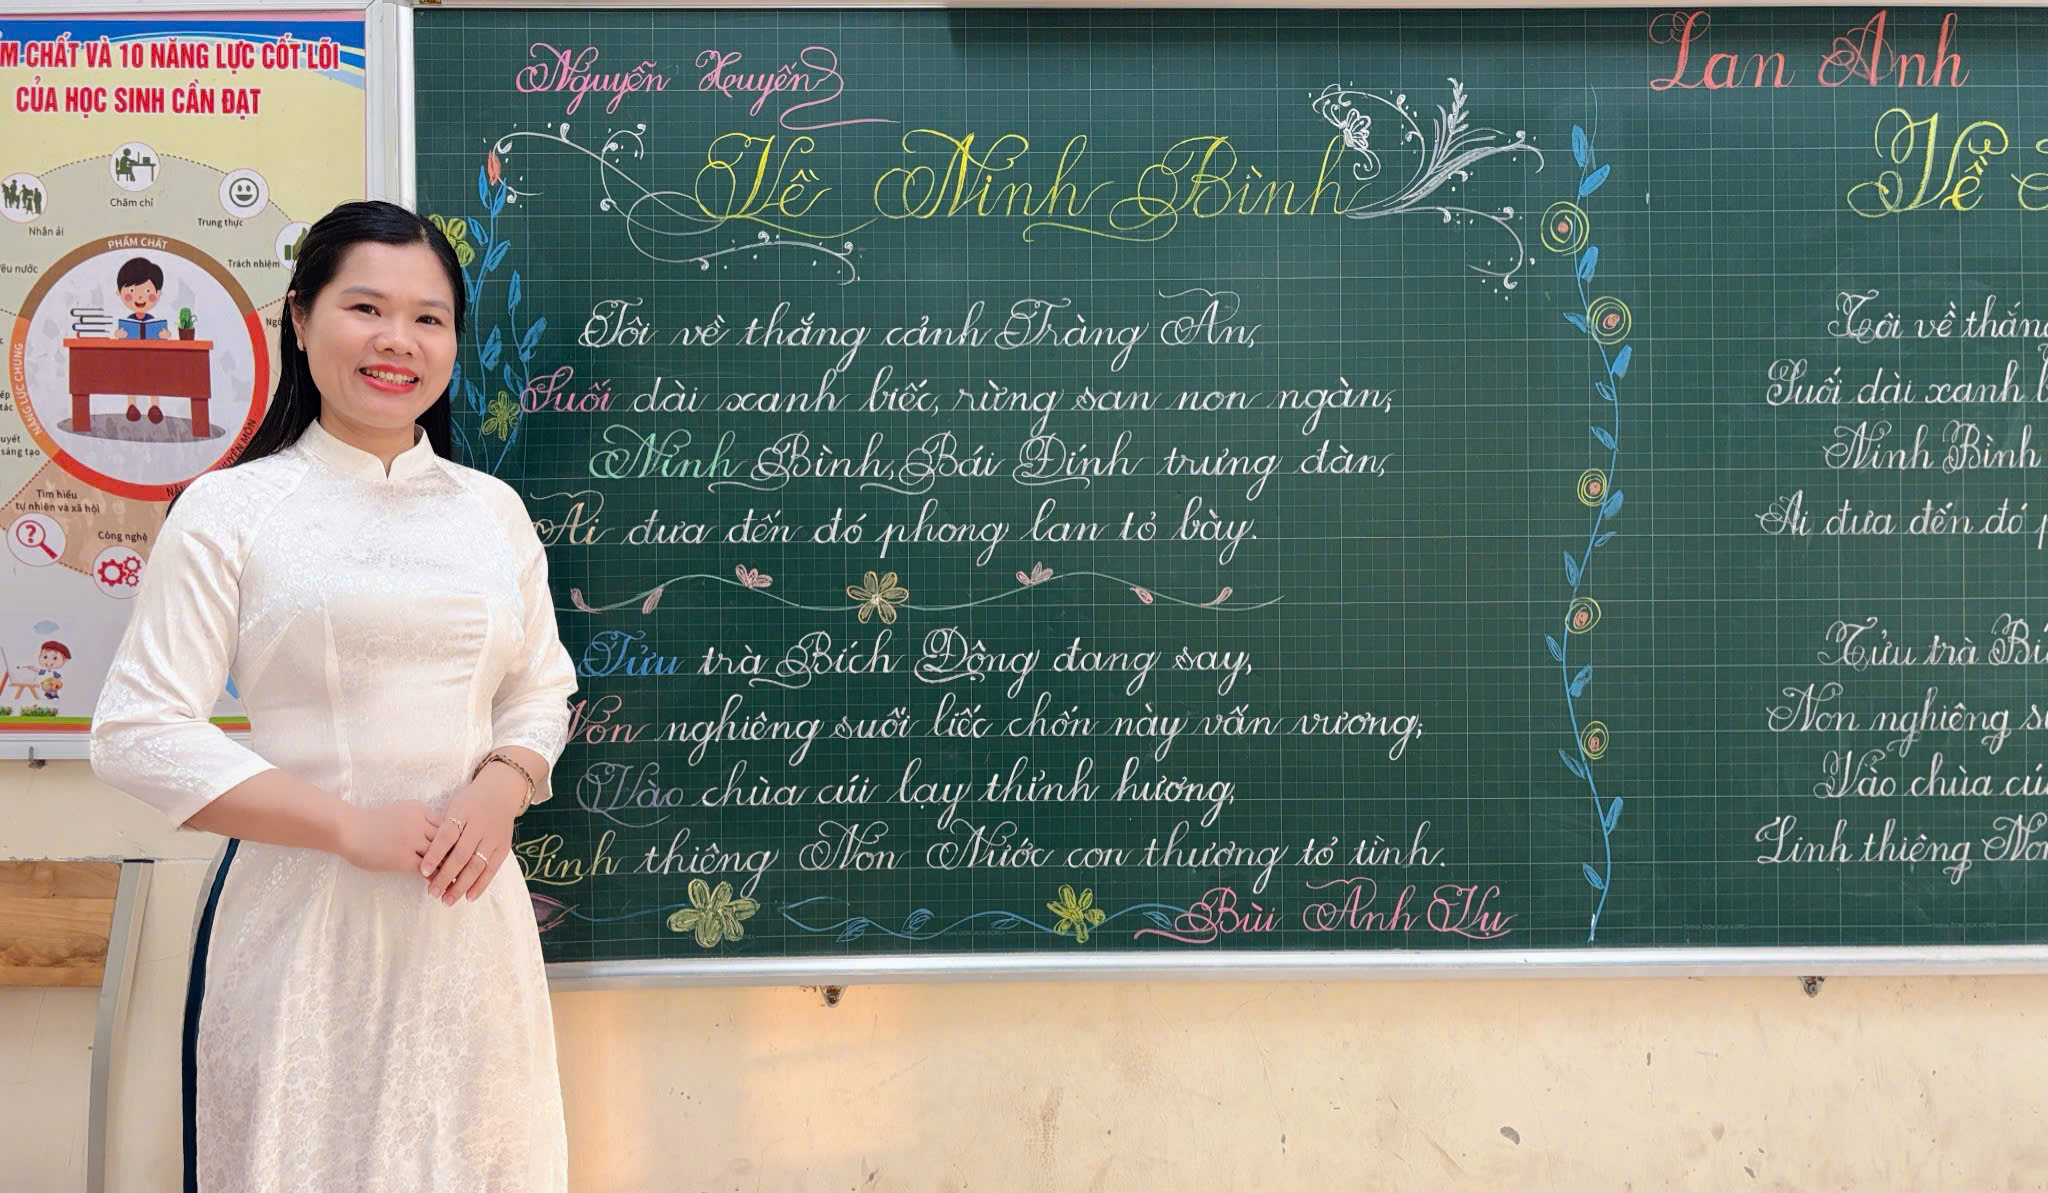 CHẤT VÀ 10 NĂNG LỰC CỐT LÕI
CỦA HỌC SINH CẦN ĐẠT
Chăm chỉ
Nhân ái
Trung thực
Trách nhiệm
PHẨM CHẤT
NĂNG LỰC CHUNG
Tìm hiểu
tự nhiên và xã hội
Công nghệ
Nguyễn Xuyến
Về Ninh Bình
Tôi về thắng cảnh Tràng An,
Suối dài xanh biếc, rừng san non ngàn;
Ninh Bình, Bái Đính trưng đàn,
Ai đưa đến đó phong lan tỏ bày.
Tửu trà Bích Động đang say,
Non nghiêng suối liếc chốn này vấn vương;
Vào chùa cúi lạy thỉnh hương,
Linh thiêng Non Nước con thương tỏ tình.
Bùi Anh Vụ
Lan Anh
Về
Tôi về thắng
Suối dài xanh
Ninh Bình
Ai đưa đến đó
Tửu trà
Non nghiêng
Vào chùa
Linh thiêng